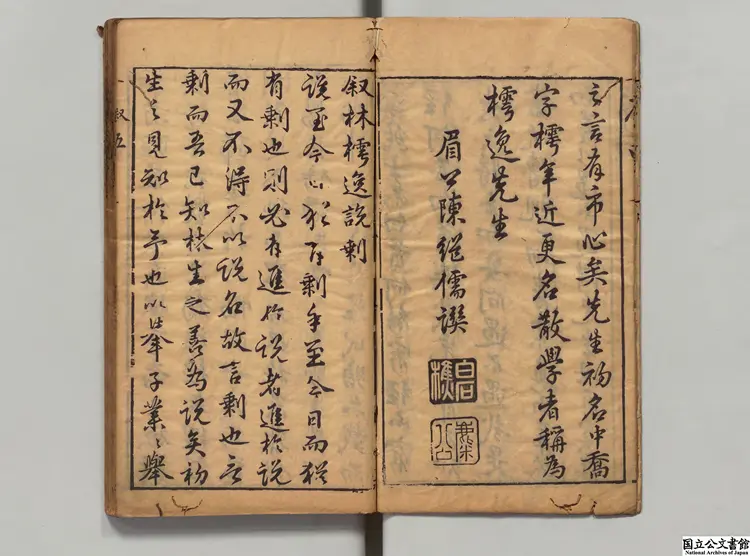 言有市心矣先生初名中喬
字樗年近更名散學者稱為
樗逸先生
眉公陳繼儒譔
白石樵
麋公
敘林樗逸說剩
說至今日猶有剩乎至今日而猶
有剩也則必有進於說者進於說
而又不得不以說名故言剩也言
剩而吾已知林生之善為說矣初
生之見知於予也以舉子業〻舉
敘五
国立公文書館
National Archives of Japan